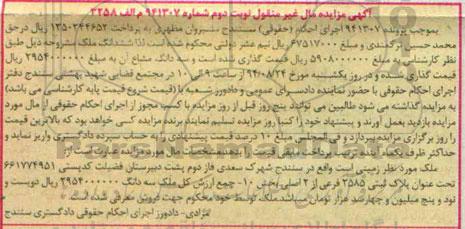 آگهی مزایده مال غیر منقول نوبت دوم شماره ۹۴۱۳۰۷ م الف ۳۲۵۸
بموجب پرونده ۹۴۱۳۰۷ اجرای احکام (حقوقی) سنندج منیروان مظهری به پرداخت ۱۳۵۰۲۴۴۶۵۲ ریال در حق
محمد حسین نرگمندی و مبلغ ۶۷۵۱۷۰۰۰ ریال نیم عشر دولتی محکوم شده است لذا ششدانگ ملک مشروحه ذیل طبق
نظر کارشناسی به مبلغ ۵۹۰۸۰۰۰۰۰۰ ریال قیمت گذاری شده است و سه دانگ مشاع آن به مبلغ ۲۹۵۴۰۰۰۰۰۰ ریال
قیمت گذاری شده و در روز یکشنبه مورخ ۹۴/۰۸/۲۴ از ساعت ۹ الی ۱۰ در مجتمع قضایی شهید بهشتی سنندج دفتر
اجرای احکام حقوقی با حضور نماینده دادسرای عمومی و دادورز شعبه با (قیمت شروع قیمت پایه کارشناسی می باشد)
به مزایده گذاشته می شود طالبین می توانند پنج روز قبل از روز مزایده با کسب مجوز از اجرای احکام حقوقی از مال مورد
مزایده بازدید بعمل آورند و پیشنهاد خود را کتبا روز مزایده تسلیم نمایند برنده مزایده کسی خواهد بود که بالاترین قیمت
را روز برگزاری مزایده بپردازد و فی المجلس مبلغ ۱۰ درصد قیمت پیشنهادی را به حساب سپرده دادگستری واریز نماید و
حداکثر ظرف یکماه آینده ترتیب پرداخت مابقی قیمت را بدهد مشخصات مال مورد مزایده عبارت است از:
ملک مورد نظر زمینی است واقع در سنندج شهرک سعدی فاز دوم پشت دبیرستان فضیلت کدپستی ۶۶۱۷۷۴۹۵۱
تحت عنوان پلاک ثبتی ۳۵۸۵ فرعی از ۲ اصلی بخش ۱۰ - جمع ارزش کل ملک سه دانگ ۲۹۵۴۰۰۰۰۰۰ ریال دویست و
نود و پنج میلیون و چهارصد هزار تومان میباشد ملک توسط خود محکوم جهت فروش معرفی شده است
مرادی- دادورز اجرای احکام حقوقی دادگستری سنندج